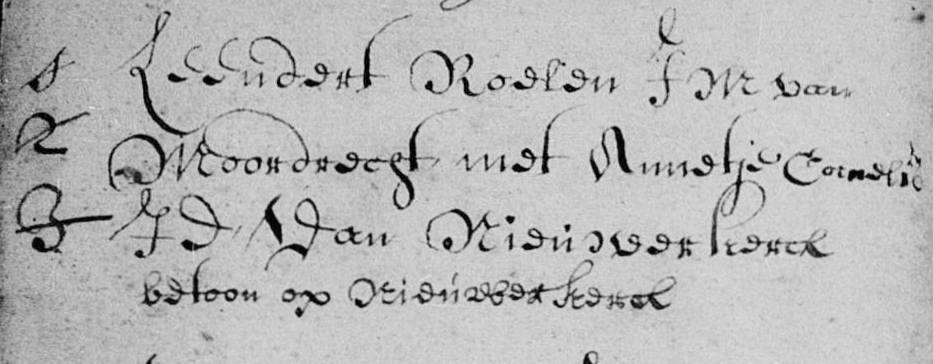 1 Leendert Roelen J M van
2 Moordrecht met Annetje Cornelis
3 J D Van Nieuwerkerck
betoon op Nieuwerkerck